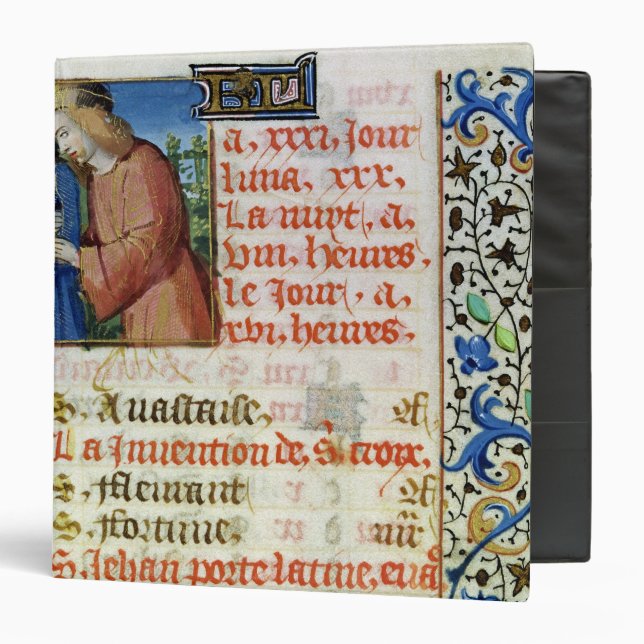 a, xxxi, Jour
luna, xxx,
La nuyt, a,
viii, heures,
le Jour, a,
xvi, heures,
S, Anastaise,
La Invention de, S, croix,
S, flemant
S, ffortune, iiii
S, Jehan porte latine, eua